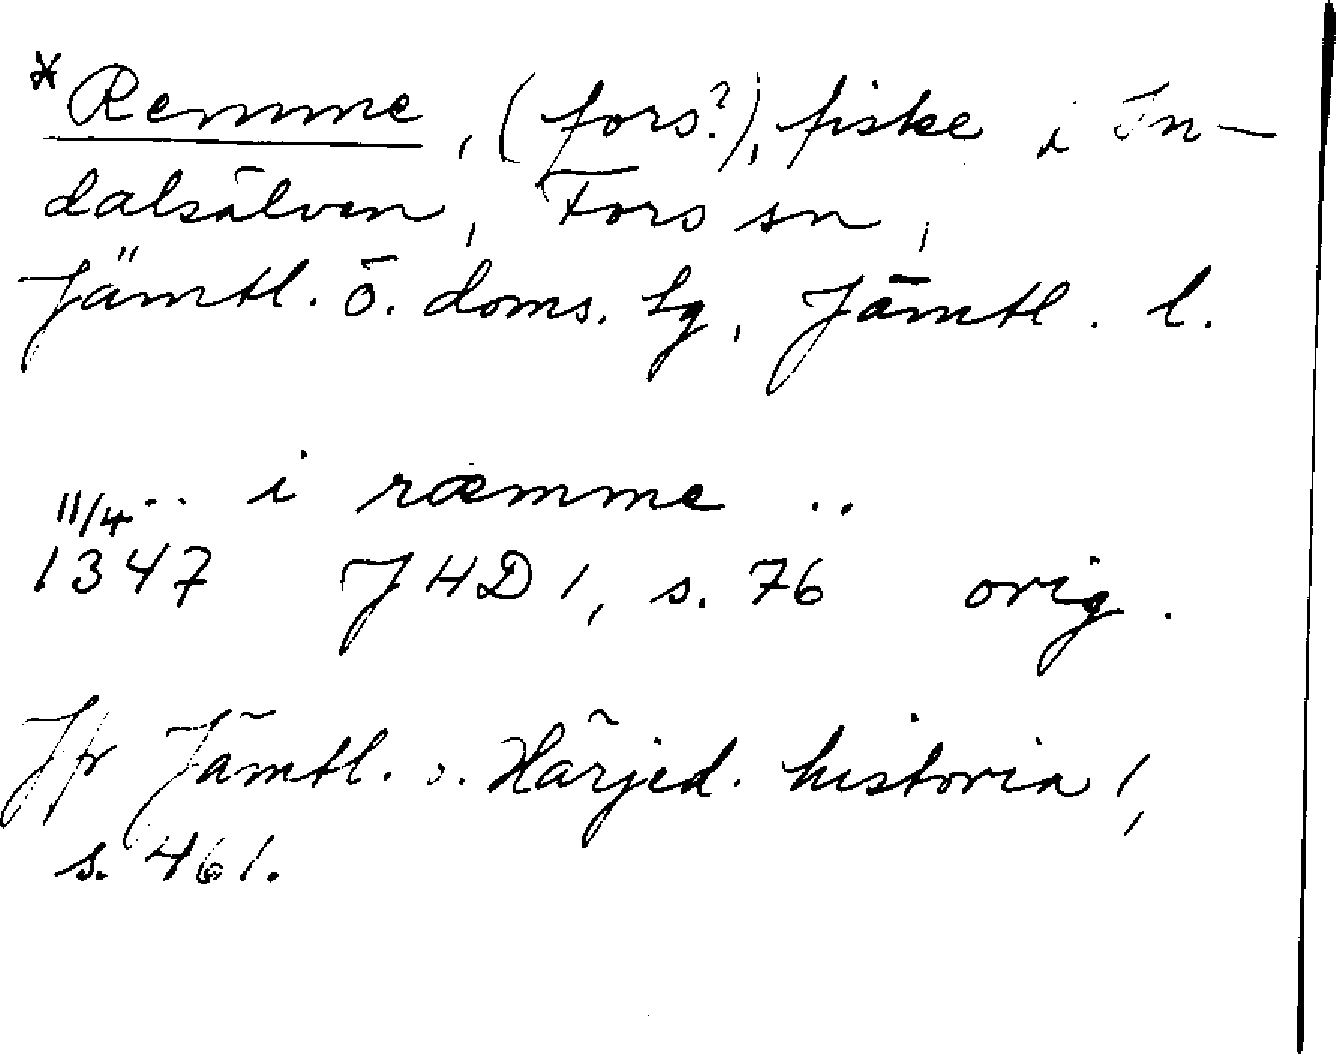 *Remme, (fors?), fiske i In-
dalsälven, Fors sn,
Jämtl. ö. doms. tg, Jämtl. l.
11/4 .. i ræmme ..
1347 JHD 1, s. 76 orig.
Jfr Jämtl. o. Härjed. historia 1,
s. 461.